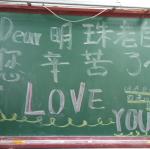 Dear 明珠老師
您辛苦了~
I LOVE
YOU